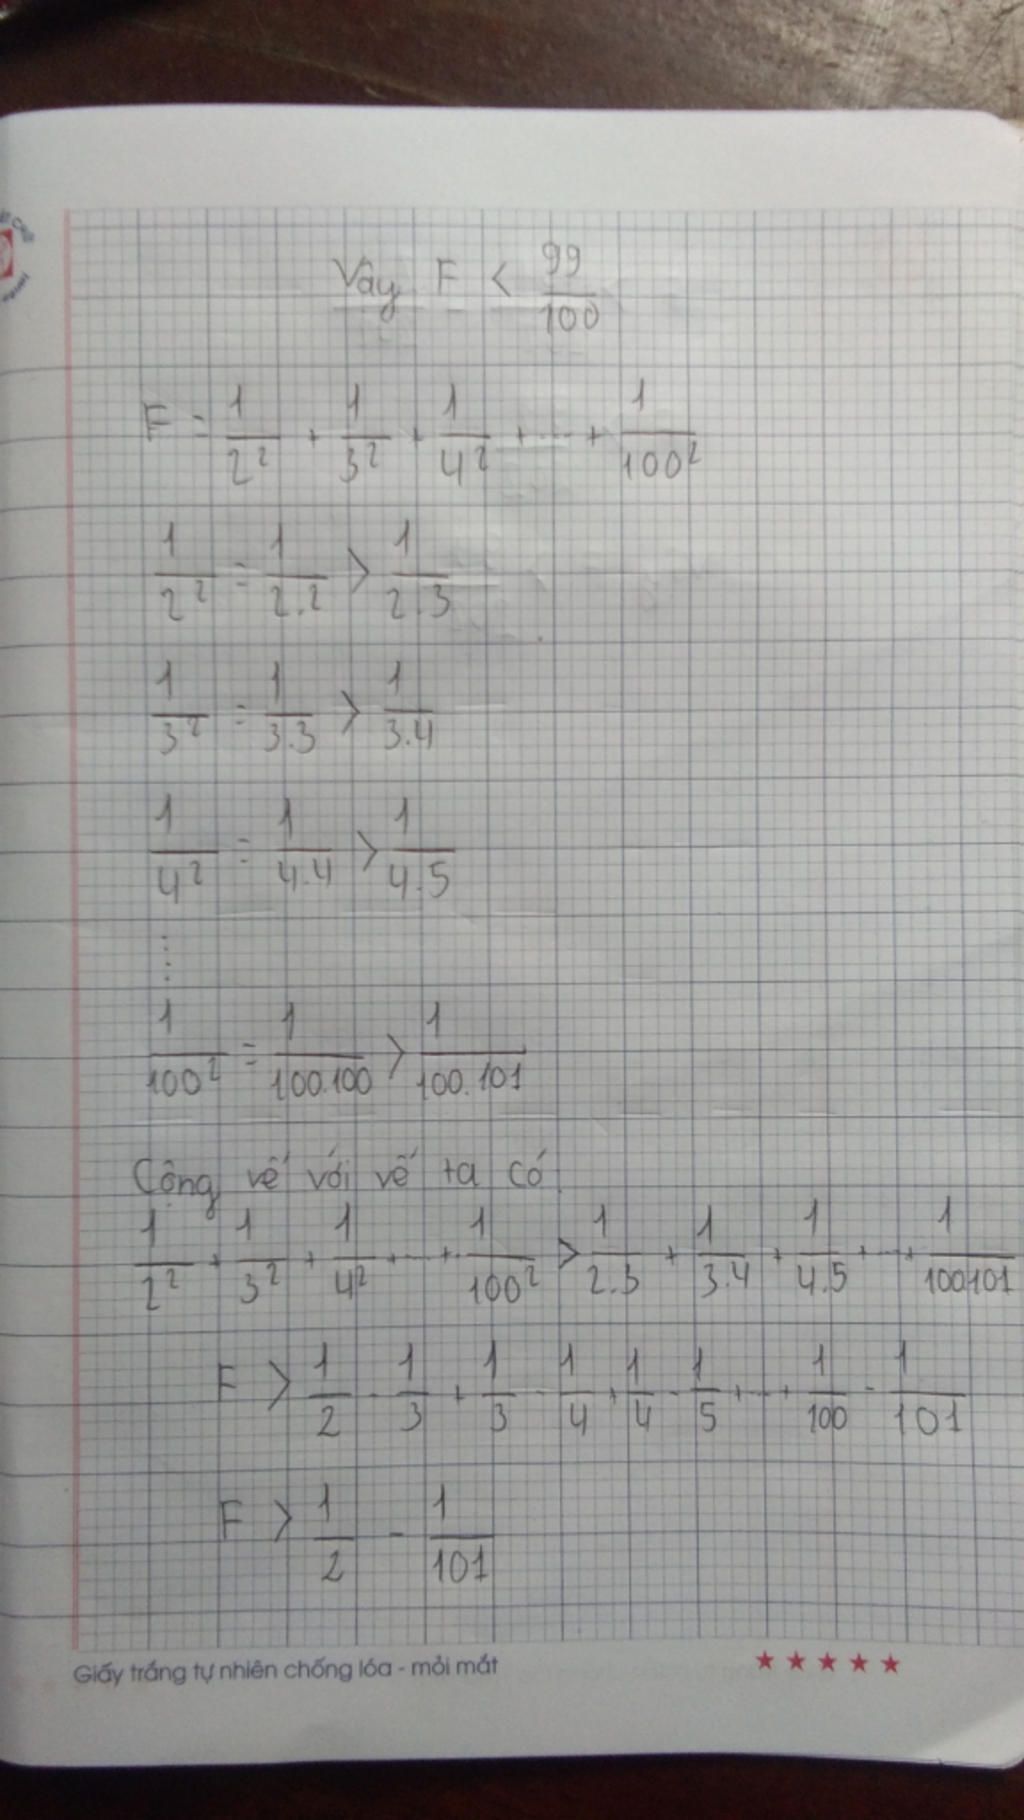 Vậy F < 99/100
F = 1/2² + 1/3² + 1/4² + ... + 1/100²
1/2² = 1/2.2 > 1/2.3
1/3² = 1/3.3 > 1/3.4
1/4² = 1/4.4 > 1/4.5
....
1/100² = 1/100.100 > 1/100.101
Cộng vế với vế ta có
1/2² + 1/3² + 1/4² + ... + 1/100² > 1/2.3 + 1/3.4 + 1/4.5 + ... + 1/100101
F > 1/2 - 1/3 + 1/3 - 1/4 + 1/4 - 1/5 + ... + 1/100 - 1/101
F > 1/2 - 1/101
Giấy trắng tự nhiên chống lóa - mỏi mắt ★★★★★